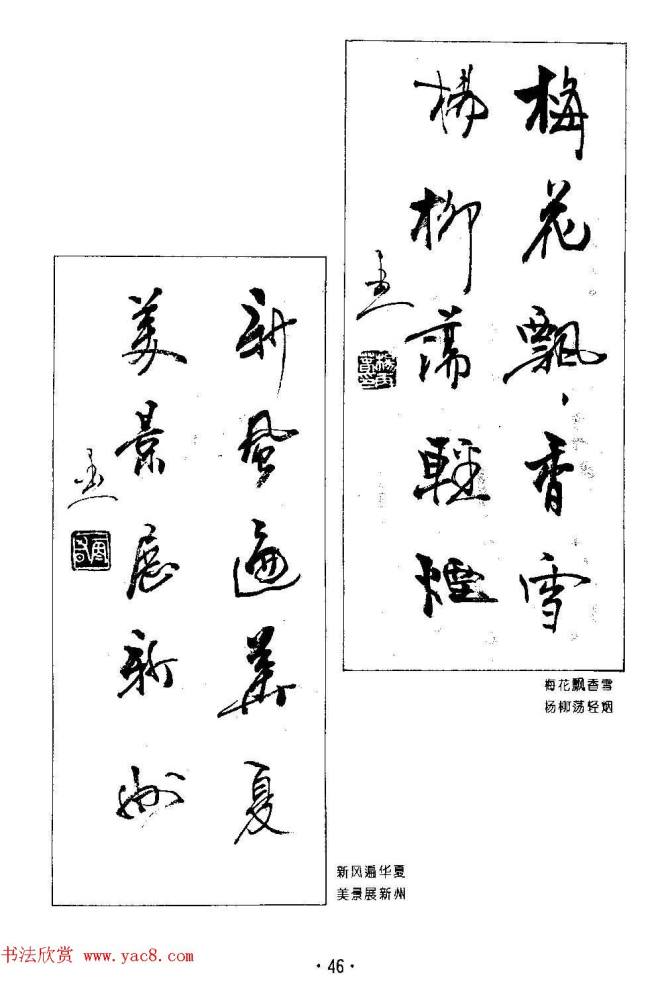 梅花飘香雪
楊柳蕩輕煙
梅花飘香雪
杨柳荡轻烟
新風遍華夏
美景展新州
新风遍华夏
美景展新州
书法欣赏 www.yac8.com
·46·